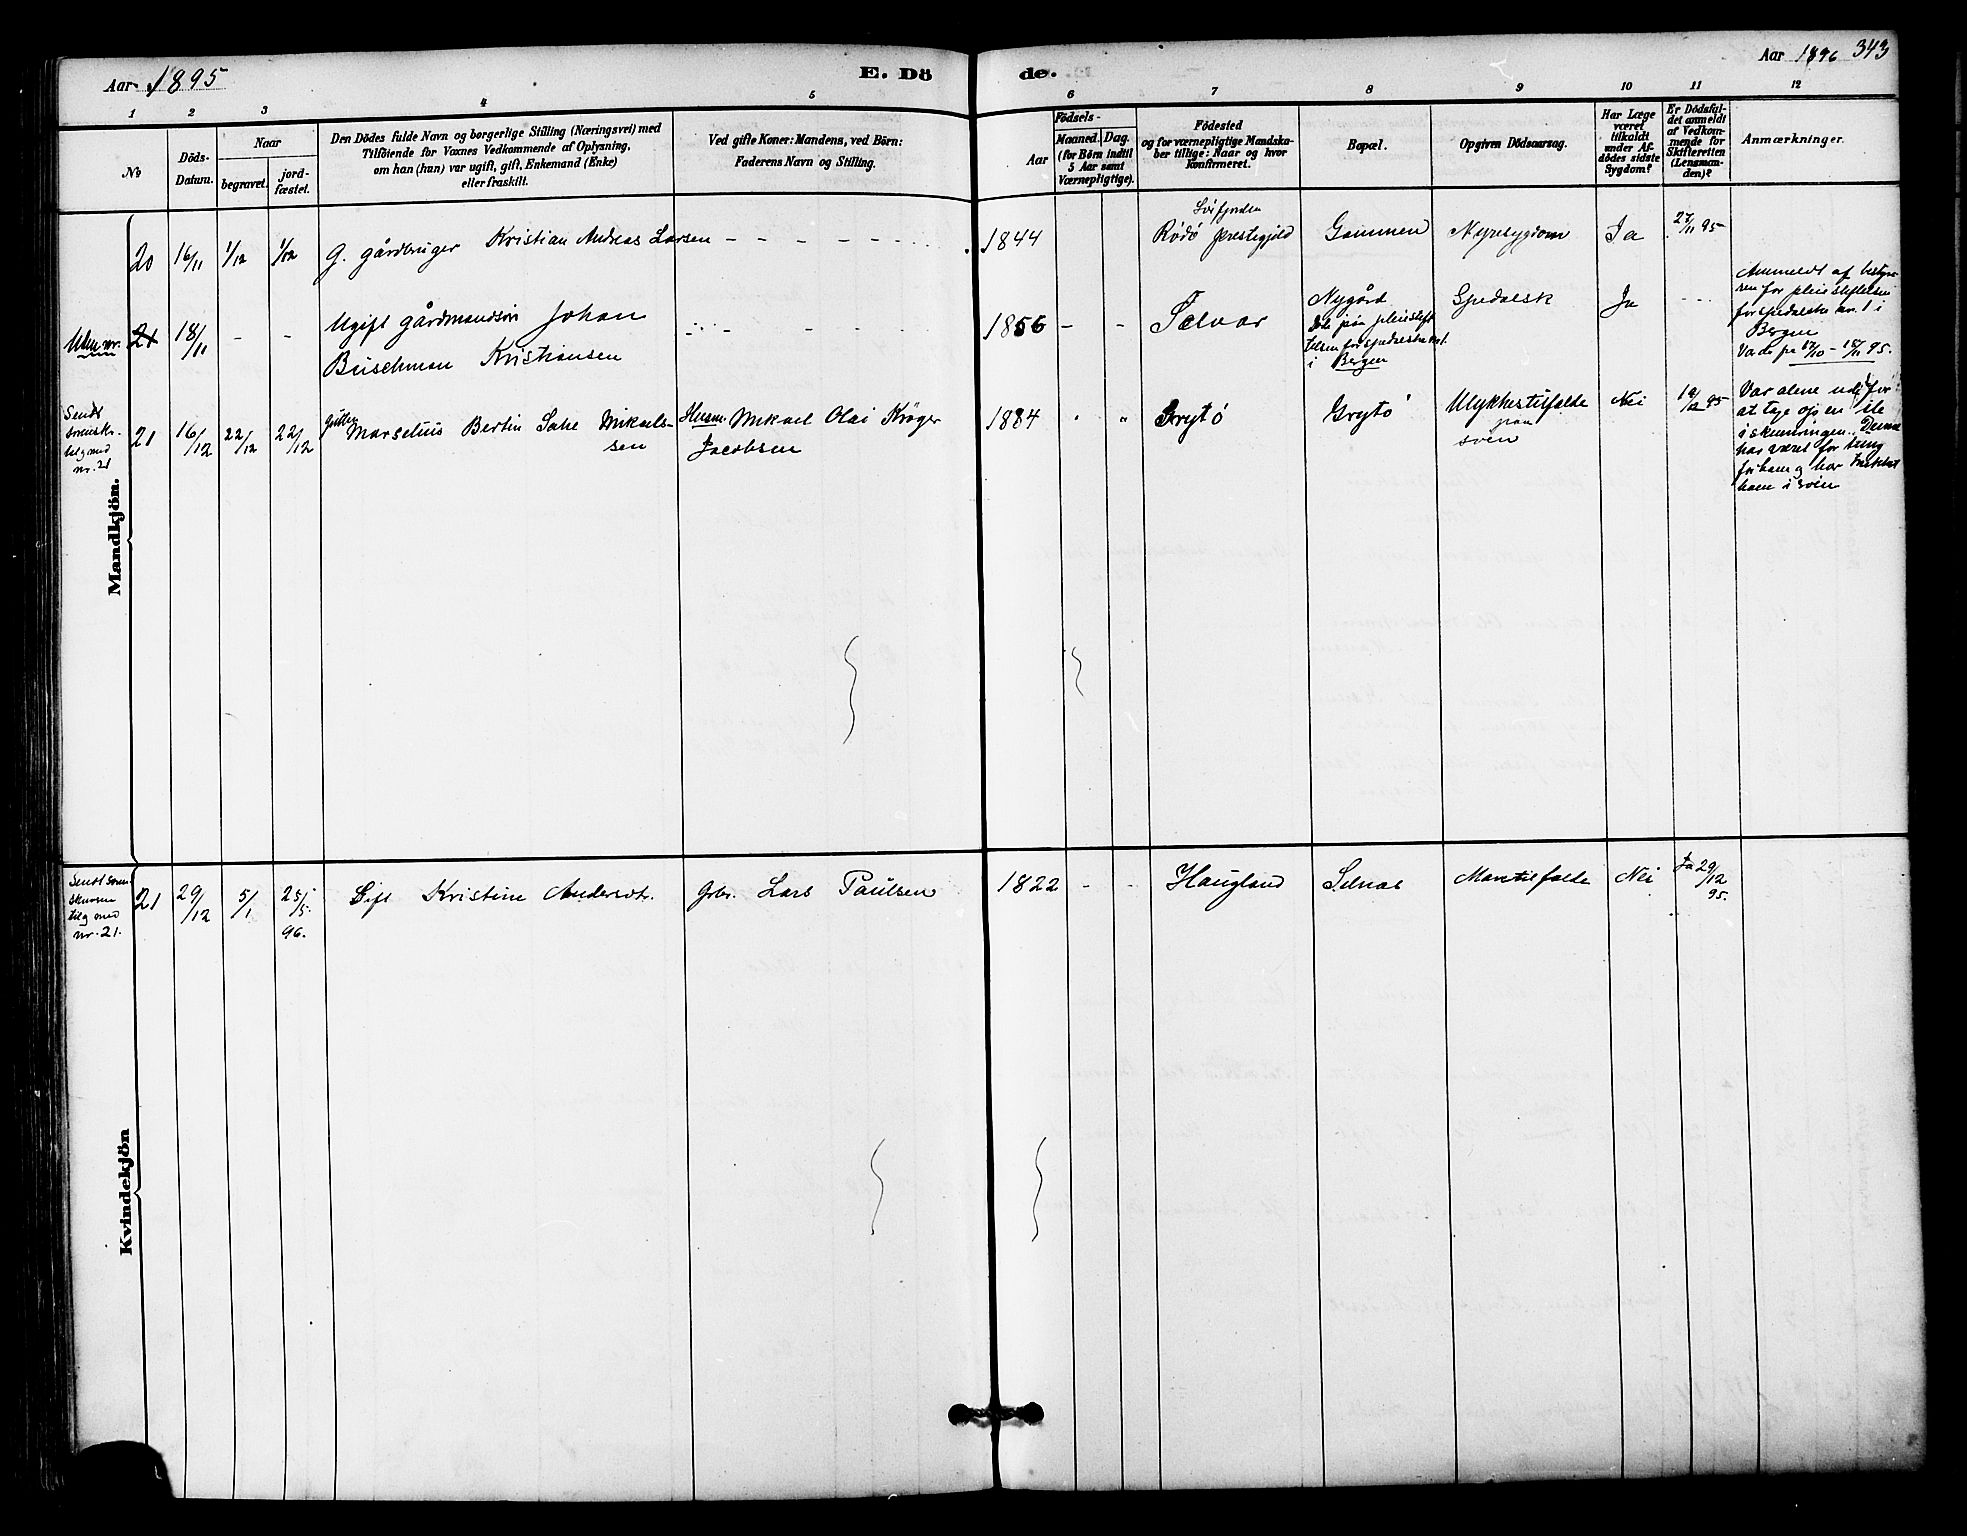 Aar 1895
E. Dö
de.
Aar 1896 343
1 2 3 4 5 6 7 8 9 10 11 12
No
Döds-
Datum.
Naar
begravet.
jord-
fæstet.
Den Dödes fulde Navn og borgerlige Stilling (Næringsvei) med
Tilföiende for Voxnes Vedkommende af Oplysning,
om han (hun) var ugift, gift, Enkemand (Enke)
eller fraskilt.
Ved gifte Koner: Mandens, ved Börn:
Faderens Navn og Stilling.
Födsels-
Aar
Maaned.
Dag.
(for Börn indtil
5 Aar samt
Værnepligtige).
Födested
og for værnepligtige Mandska-
ber tillige: Naar og hvor
konfirmeret.
Bopæl.
Opgiven Dödsaarsag.
Har Læge
været
tilkaldt
under Af-
dödes sidste
Sygdom?
Er Dödsfal-
det anmeldt
af Vedkom-
mende for
Skifteretten
(Lensman-
den)?
Anmærkninger.
Mandkjön.
20 16/11 1/12 1/12 G. gårdbruger Kristian Andreas Larsen - - - - - 1844
Rødø prestegjeld Gammen Nyresygdom Ja 27/11 95
Uden nr. 21 18/11 - - Ugift gårdmandssön Johan
Buschman Kristiansen
1856 - - Selvær
Nygård
Döde på pleiestift
telsen for spedalske nr. 1
i Bergen
Spedalsk Ja - - -
Anmeldt af besty-
ren for pleiestiftelsen
for spedalske nr. 1 i
Bergen
Sendt
skr.
nr. 21
21 16/12 22/12 22/12 Gutten Marselius Bertin Sake Mikaels-
sen
Husm. Mikael Olai Krøger
Jacobsen
1884 Grytö Grytö
Ulykkestilfælde
på
söen
Nei 19/12 95
Var alene ude for
at tage op en ile
i skumringen. Denne
har været for tung
for ham og har trukket
ham i söen
Kvindekjön
Sendt soren-
skriveren
tilg med
nr. 21.
21 29/12 5/1 25/5 96. Gift Kristine Andersdtr. Gbr. Lars Paulsen 1822 - - Haugland Selnæs Mavetilfælde Nei Ja 29/12 95.